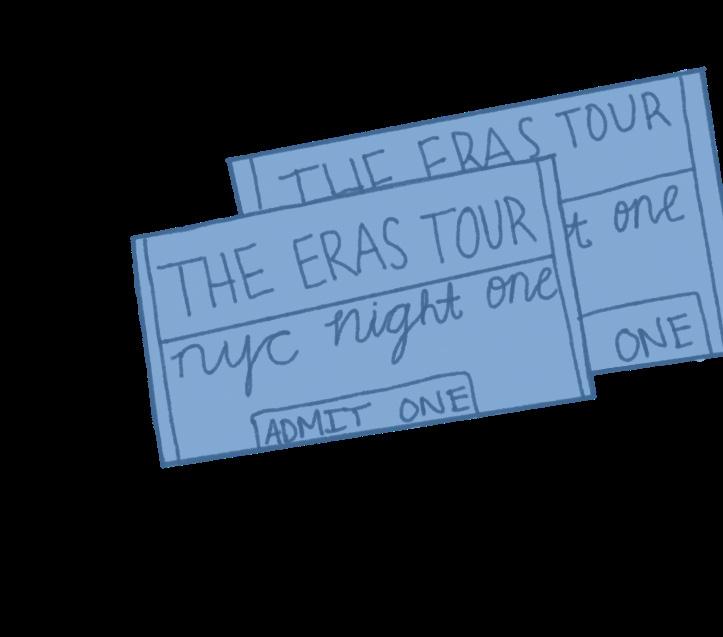 THE ERAS TOUR
t one
ONE
THE ERAS TOUR
nyc night one
ADMIT ONE